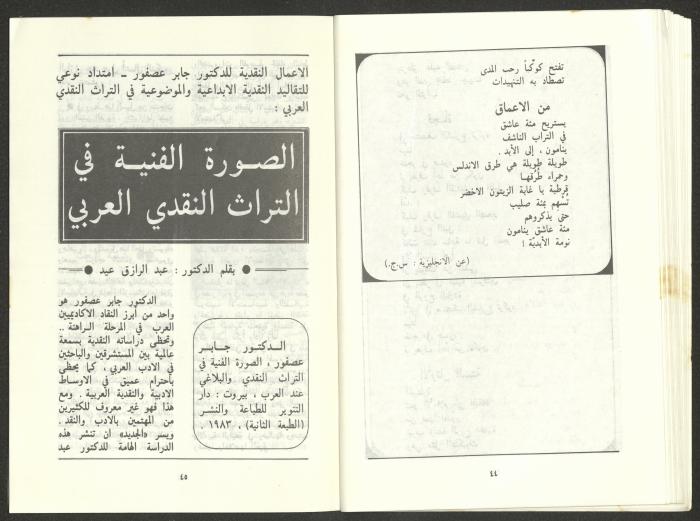 تفتح كوكباً رحب المدى
تصطاد به التنهيدات
من الاعماق
يستريح مئة عاشق
في التراب الناشف
ينامون ، إلى الأبد .
طويلة طويلة هي طرق الاندلس
وحمراء طُرُقها
قرطبة يا غابة الزيتون الاخضر
تُسْهِم بمئة صليب
حتى يذكروهم
مئة عاشق ينامون
نومة الأبديّة !
(عن الانجليزية : س.ج.)
٤٤
الاعمال النقدية للدكتور جابر عصفور ـ امتداد نوعي
للتقاليد النقدية الابداعية والموضوعية في التراث النقدي
العربي :
الصـورة الفنيـة في
التراث النقدي العربي
● بقلم الدكتور : عبد الرازق عيد ●
الدكتور جابر عصفور هو
واحد من أبرز النقاد الاكاديميين
العرب في المرحلة الـراهنة ..
وتحظى دراساته النقدية بسمعة
عالمية بين المستشرقين والباحثين
في الادب العربي ، كما يحظى
باحترام عميق في الاوساط
الادبية والنقدية العربية . ومع
هذا فهو غير معروف للكثيرين
من المهتمين بالادب والنقد .
ويسر «الجديد» ان تنشر هذه
الدراسة الهامة للدكتور عبد
الـدكتـور جـابـر
عصفور ، الصورة الفنية في
التراث النقدي والبلاغي
عند العرب ، بيروت : دار
التنوير للطباعة والنشـر
(الطبعة الثانية) ، ١٩٨٣ .
٤٥